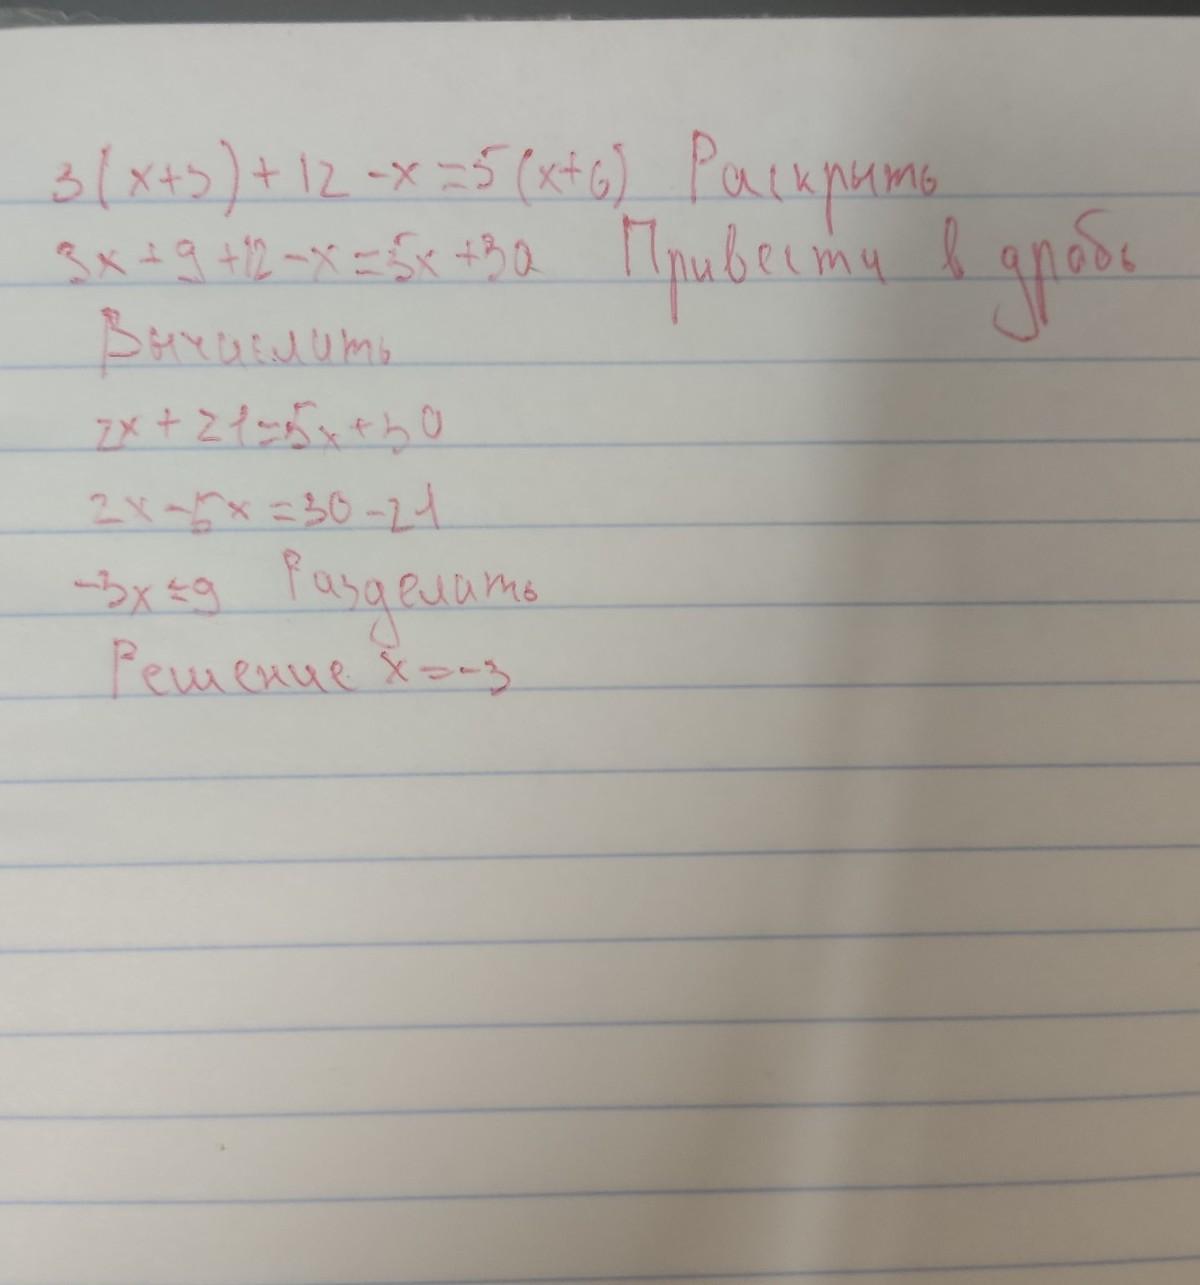 3(x+3)+12-x=5(x+6) Раскрыть
3x+9+12-x=5x+30 Привести в дробь
Вычислить
2x+21=5x+30
2x-5x=30-21
-3x=9 Разделить
Решение x=-3